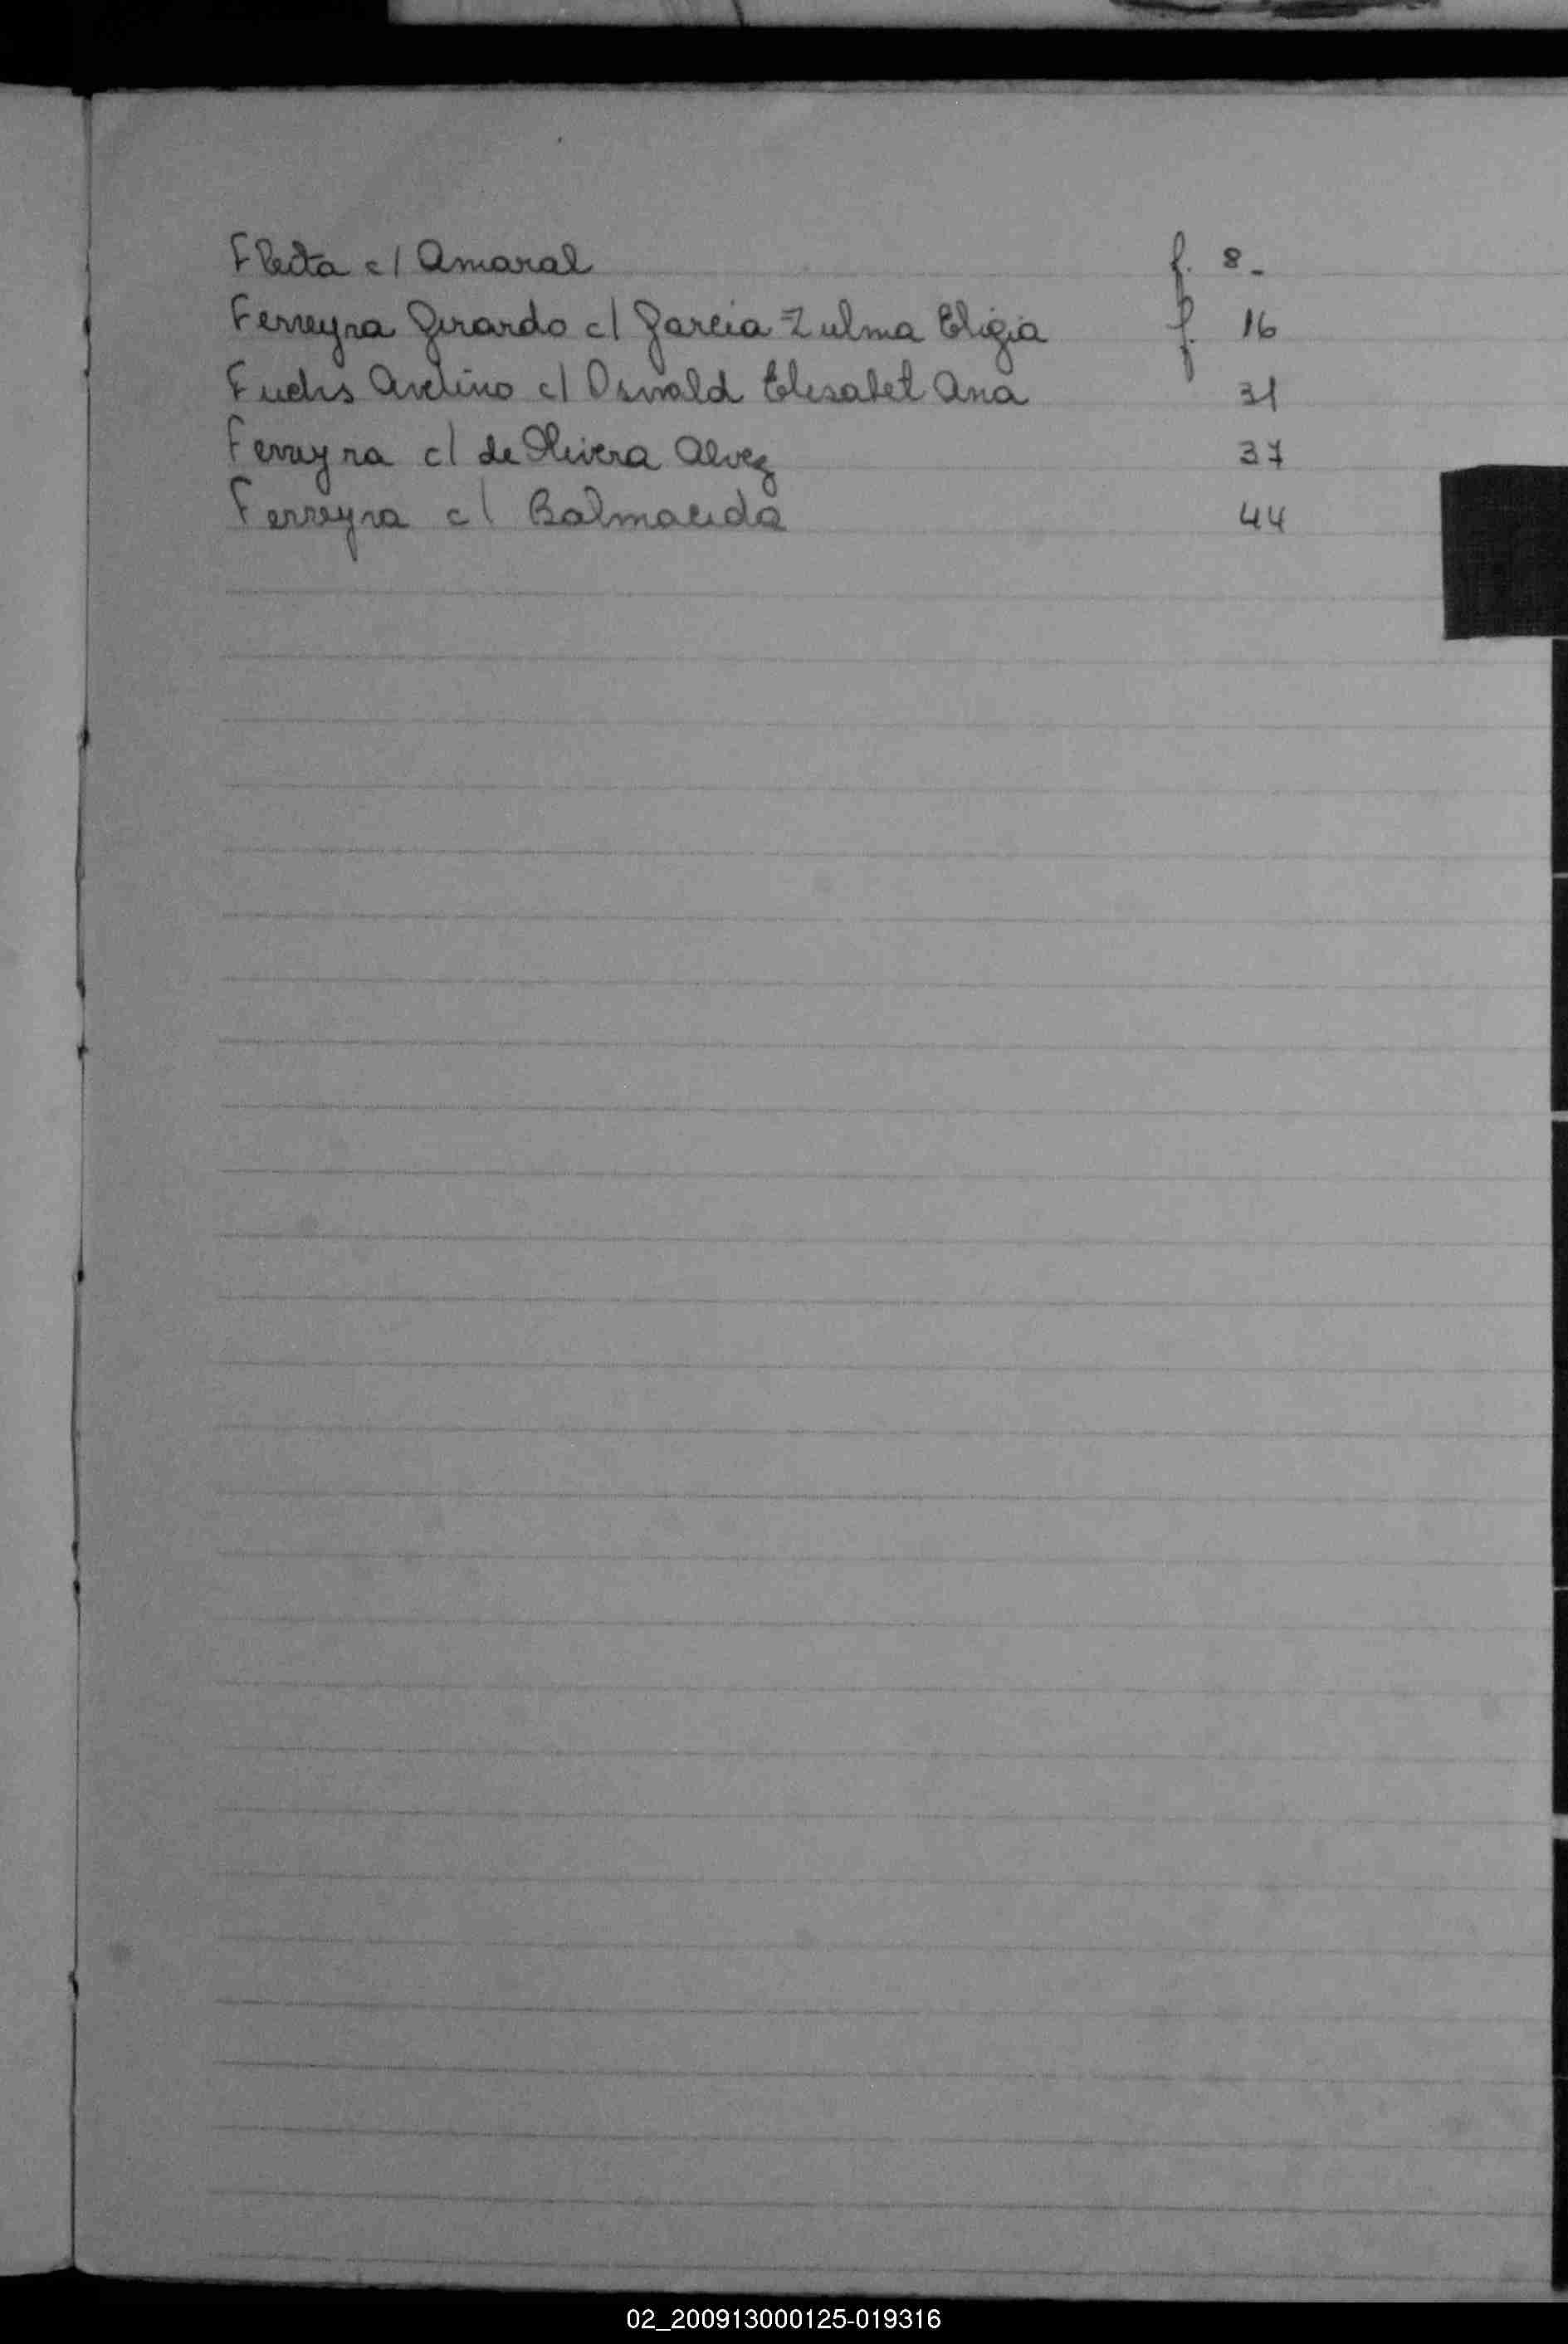 Fleita c/ Amaral f. 8-
Ferreyra Gerardo c/ Garcia Zulma Eligia f. 16
Fuchs Avelino c/ Oswald Elisabet Ana 31
Ferreyra c/ de Olivera Alvez 37
Ferreyra c/ Balmaceda 44
02_200913000125-019316